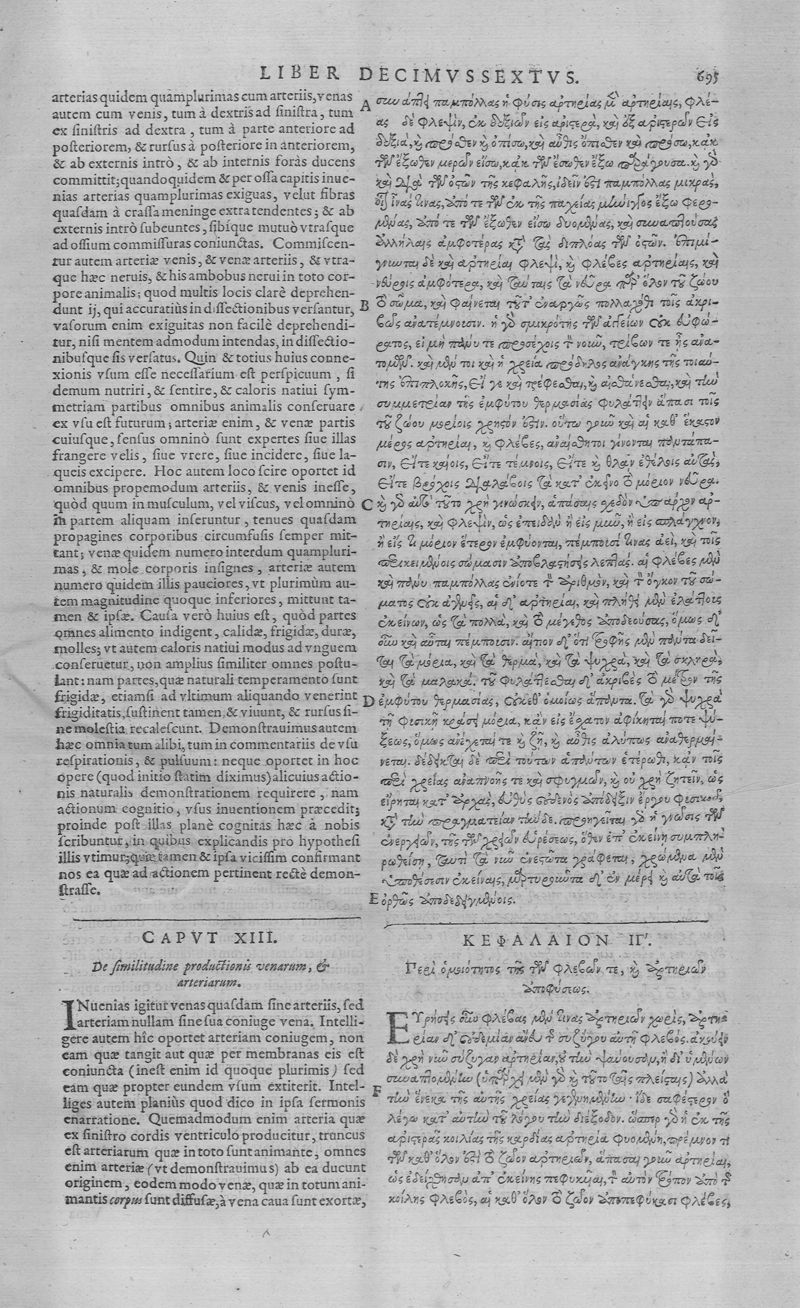 LIBER DECIMVSSEXTVS. 695
arterias quidem quàmplurimas cum arteriis, venas
autem cum venis, tum à dextris ad sinistra, tum
ex sinistris ad dextra, tum à parte anteriore ad
posteriorem, & rursus à posteriore in anteriorem,
& ab externis intrò, & ab internis foràs ducens
committit; quandoquidem & per ossa capitis inue-
nias arterias quamplurimas exiguas, velut fibras
quasdam à crassa meninge extra tendentes; & ab
externis intrò subeuntes, sibíque mutuò vtrasque
ad ossium commissuras coniunctas. Commiscen-
tur autem arteriæ venis, & venæ arteriis, & vtra-
que hæc neruis, & his ambobus nerui in toto cor-
pore animalis; quod multis locis clarè deprehen-
dunt ij, qui accuratiùs in dissectionibus versantur,
vasorum enim exiguitas non facilè deprehendi-
tur, nisi mentem admodum intendas, in dissectio-
nibusque sis versatus. Quin & totius huius conne-
xionis vsum esse necessarium est perspicuum, si
demum nutriri, & sentire, & caloris natiui sym-
metriam partibus omnibus animalis conseruare
ex vsu est futurum; arteriæ enim, & venæ partis
cuiusque, sensus omninò sunt expertes siue illas
frangere velis, siue vrere, siue incidere, siue la-
queis excipere. Hoc autem loco scire oportet id
omnibus propemodum arteriis, & venis inesse,
quòd quum in musculum, vel viscus, vel omninò
in partem aliquam inseruntur, tenues quasdam
propagines corporibus circumfusis semper mit-
tant; venæ quidem numero interdum quamplurî-
mas, & mole corporis insignes, arteriæ autem
numero quidem illis pauciores, vt plurimùm au-
tem magnitudine quoque inferiores, mittunt ta-
men & ipsæ. Causa verò huius est, quòd partes
omnes alimento indigent, calidæ, frigidæ, duræ,
molles; vt autem caloris natiui modus ad vnguem
conseruetur, non amplius similiter omnes postu-
lant: nam partes, quæ naturali temperamento sunt
frigidæ, etiamsi ad vltimum aliquando venerint
frigiditatis, sustinent tamen, & viuunt, & rursus si-
ne molestia recalescunt. Demonstrauimus autem
hæc omnia tum alibi, tum in commentariis de vsu
respirationis, & pulsuum: neque oportet in hoc
opere (quod initio statim diximus) alicuius actio-
nis naturalis demonstrationem requirere, nam
actionum cognitio, vsus inuentionem præcedit;
proinde post illas planè cognitas hæc à nobis
scribuntur, in quibus explicandis pro hypothesi
illis vtimur; quæ tamen & ipsa vicissim confirmant
nos ea quæ ad actionem pertinent rectè demon-
strasse.
CAPVT XIII.
De similitudine productionis venarum, &
arteriarum.
INuenias igitur venas quasdam sine arteriis, sed
arteriam nullam sine sua coniuge vena. Intelli-
gere autem hîc oportet arteriam coniugem, non
eam quæ tangit aut quæ per membranas eis est
coniuncta (inest enim id quoque plurimis) sed
eam quæ propter eundem vsum extiterit. Intel-
liges autem planiùs quod dico in ipsa sermonis
enarratione. Quemadmodum enim arteria quæ
ex sinistro cordis ventriculo producitur, truncus
est arteriarum quæ in toto sunt animante, omnes
enim arteriæ (vt demonstrauimus) ab ea ducunt
originem, eodem modo venæ, quæ in totum ani-
mantis corpus sunt diffusæ, à vena caua sunt exortæ,
A
συνάπτει παμπόλλας ἡ φύσις ἀρτηρίας μετ' ἀρτηρίας, φλέ-
βας δὲ φλεψὶν, ἐκ δεξιῶν εἰς ἀριστερὰ, καὶ ἐξ ἀριστερῶν εἰς
δεξιὰ, καὶ πρόσθεν καὶ ὀπίσω, καὶ αὖθις ὄπιθεν καὶ πρόσω, κἀκ
τῶν ἔξωθεν μερῶν εἴσω, κἀκ τῶν ἔσωθεν ἔξω προάγουσα. καὶ γὰρ
καὶ διὰ τῶν ὀστῶν τῆς κεφαλῆς, ἰδεῖν ἔστι παμπόλλας μικρὰς,
ἶνας τινας, ἀπό τε τῶν ἐκ τῆς παχείας μήνιγγος ἔξω φερο-
μένας, ἀπό τε τῶν ἔξωθεν εἴσω δυομένας, καὶ συναπτούσας
ἀλλήλαις ἀμφοτέρας κατὰ τὰς διπλόας τῶν ὀστῶν. ἐπιμί-
γνυνται δὲ καὶ ἀρτηρίαι φλεψὶ, καὶ φλέβες ἀρτηρίαις, καὶ
νεύροις ἀμφότερα, καὶ ταύταις τὰ νεῦρα παρ' ὅλον τοῦ ζώου
B τὸ σῶμα, καὶ φαίνεται τοῦτ' ἐναργῶς πολλαχόθι τοῖς ἀκρι-
βῶς ἀνατέμνουσιν. ἡ γὰρ σμικρότης τῶν ἀγγείων οὐκ εὐφώ-
ρατος, εἰ μὴ πάνυ τε προσέχοις τὸν νοῦν, τρίβων τε ᾖς ἀνα-
τομῶν. καὶ μέν τοι καὶ ἡ χρεία πρόδηλος ἀνάγκης τῆς τοιαύ-
της ἐπιπλοκῆς, εἴ γε καὶ τρέφεσθαι, καὶ αἰσθάνεσθαι, καὶ τὴν
συμμετρίαν τῆς ἐμφύτου θερμασίας φυλάττειν ἅπασι τοῖς
τοῦ ζώου μορίοις χρηστόν ἐστιν. οὕτω γοῦν καὶ αἱ καθ' ἕκαστον
μέρος ἀρτηρίαι, καὶ φλέβες, ἀναίσθητοι γίνονται παντάπα-
σιν, εἴτε καίοις, εἴτε τέμνοις, εἴτε καὶ θλᾶν ἐθέλοις αὐτὰς,
εἴτε βρόχοις διαλάβοις τὰ κατ' ἐκεῖνο τὸ μόριον νεῦρα.
C καὶ γὰρ αὖ τοῦτο χρὴ γινώσκειν, ἁπάσαις σχεδὸν ὑπάρχον ἀρ-
τηρίαις, καὶ φλεψὶν, ὡς ἐπειδὰν ἢ εἰς μῦν, ἢ εἰς σπλάγχνον,
ἢ εἴς τι μόριον ἕτερον ἐμφύονται, πέμπουσί τινας ἀεὶ, καὶ τοῖς
περικειμένοις σώμασιν ἀποβλαστήσεις λεπτάς. αἱ φλέβες μὲν
καὶ πάνυ παμπόλλας ἐνίοτε τὸν ἀριθμὸν, καὶ τὸν ὄγκον τοῦ σώ-
ματος οὐκ ἀγενεῖς, αἱ δ' ἀρτηρίαι, καὶ πλήθει μὲν ἐλάττους
ἐκείνων, ὡς τὰ πολλὰ, καὶ τὸ μέγεθος ἀποδεούσας, ὅμως δ'
οὖν καὶ αὗται πέμπουσιν. αἴτιον δ' ὅτι τροφῆς μὲν πάντα δεῖ-
ται τὰ μόρια, καὶ τὰ θερμὰ, καὶ τὰ ψυχρὰ, καὶ τὰ σκληρὰ,
καὶ τὰ μαλακά. τοῦ φυλάττεσθαι δ' ἀκριβῶς τὸ μέτρον τῆς
D ἐμφύτου θερμασίας, οὐκέθ' ὁμοίως ἅπαντα. τὰ γὰρ ψυχρὰ
τῇ φυσικῇ κράσει μόρια, κἂν εἰς ἔσχατον ἀφίκηταί ποτε ψύ-
ξεως, ὅμως ἀνέχεταί τε καὶ ζῇ, καὶ αὖθις ἀλύπως ἀναθερμαί-
νεται. δέδεικται δὲ περὶ τούτων ἁπάντων ἑτέρωθι, κἀν τοῖς
περὶ χρείας ἀναπνοῆς τε καὶ σφυγμῶν, καὶ οὐ χρὴ ζητεῖν, ὡς
εἴρηται κατ' ἀρχὰς, εὐθὺς οὐδενὸς ἀπόδειξιν ἔργου φυσικοῦ,
κατὰ τὴν πραγματείαν τήνδε. προηγεῖται γὰρ ἡ γνῶσις τῶν
ἐνεργειῶν, τῆς τῶν χρειῶν εὑρέσεως, ὅθεν ἐπ' ἐκείνῃ συμπλη-
ρωθείσῃ, ταυτὶ τὰ νῦν ἐνεστῶτα γράφεται, χρώμενα μὲν
ὑποθέσεσιν ἐκείναις, μαρτυροῦντα δ' ἐν μέρει καὶ αὐτὰ τοῖς
E ὀρθῶς ἀποδεδειγμένοις.
ΚΕΦΑΛΑΙΟΝ ΙΓ'.
Περὶ ὁμοιότητος τῆς τῶν φλεβῶν τε, καὶ ἀρτηριῶν
ἀποφύσεως.
Εὑρήσεις οὖν φλέβας μέν τινας ἀρτηριῶν χωρὶς, ἀρτη-
ρίαν δ' οὐδεμίαν ἄνευ τῆς συζύγου αὐτῇ φλεβός. ἀκούειν
δὲ χρὴ νῦν συζυγῆ ἀρτηρίαν, οὐ τὴν ψαύουσαν, ἢ δι' ὑμένων
συναπτομένην (ὑπάρχει μὲν γὰρ καὶ τοῦτο ταῖς πλείσταις) ἀλλὰ
F τὴν ἕνεκα τῆς αὐτῆς χρείας γεγενημένην· ἴδε σαφέστερον ὃ
λέγω κατ' αὐτὴν τοῦ λόγου τὴν διέξοδον. ὥσπερ γὰρ ἡ ἐκ τῆς
ἀριστερᾶς κοιλίας τῆς καρδίας ἀρτηρία φυομένη, πρέμνον τι
καθ' ὅλον ἐστὶ τὸ ζῶον ἀρτηριῶν, ἅπασαι γοῦν ἀρτηρίαι,
ὡς ἐδείχθησαν ἀπ' ἐκείνης πεφύκασι, τὸν αὐτὸν τρόπον ἀπὸ τῆς
κοίλης φλεβὸς, αἱ καθ' ὅλον τὸ ζῶον ἀποπεφύκασι φλέβες,